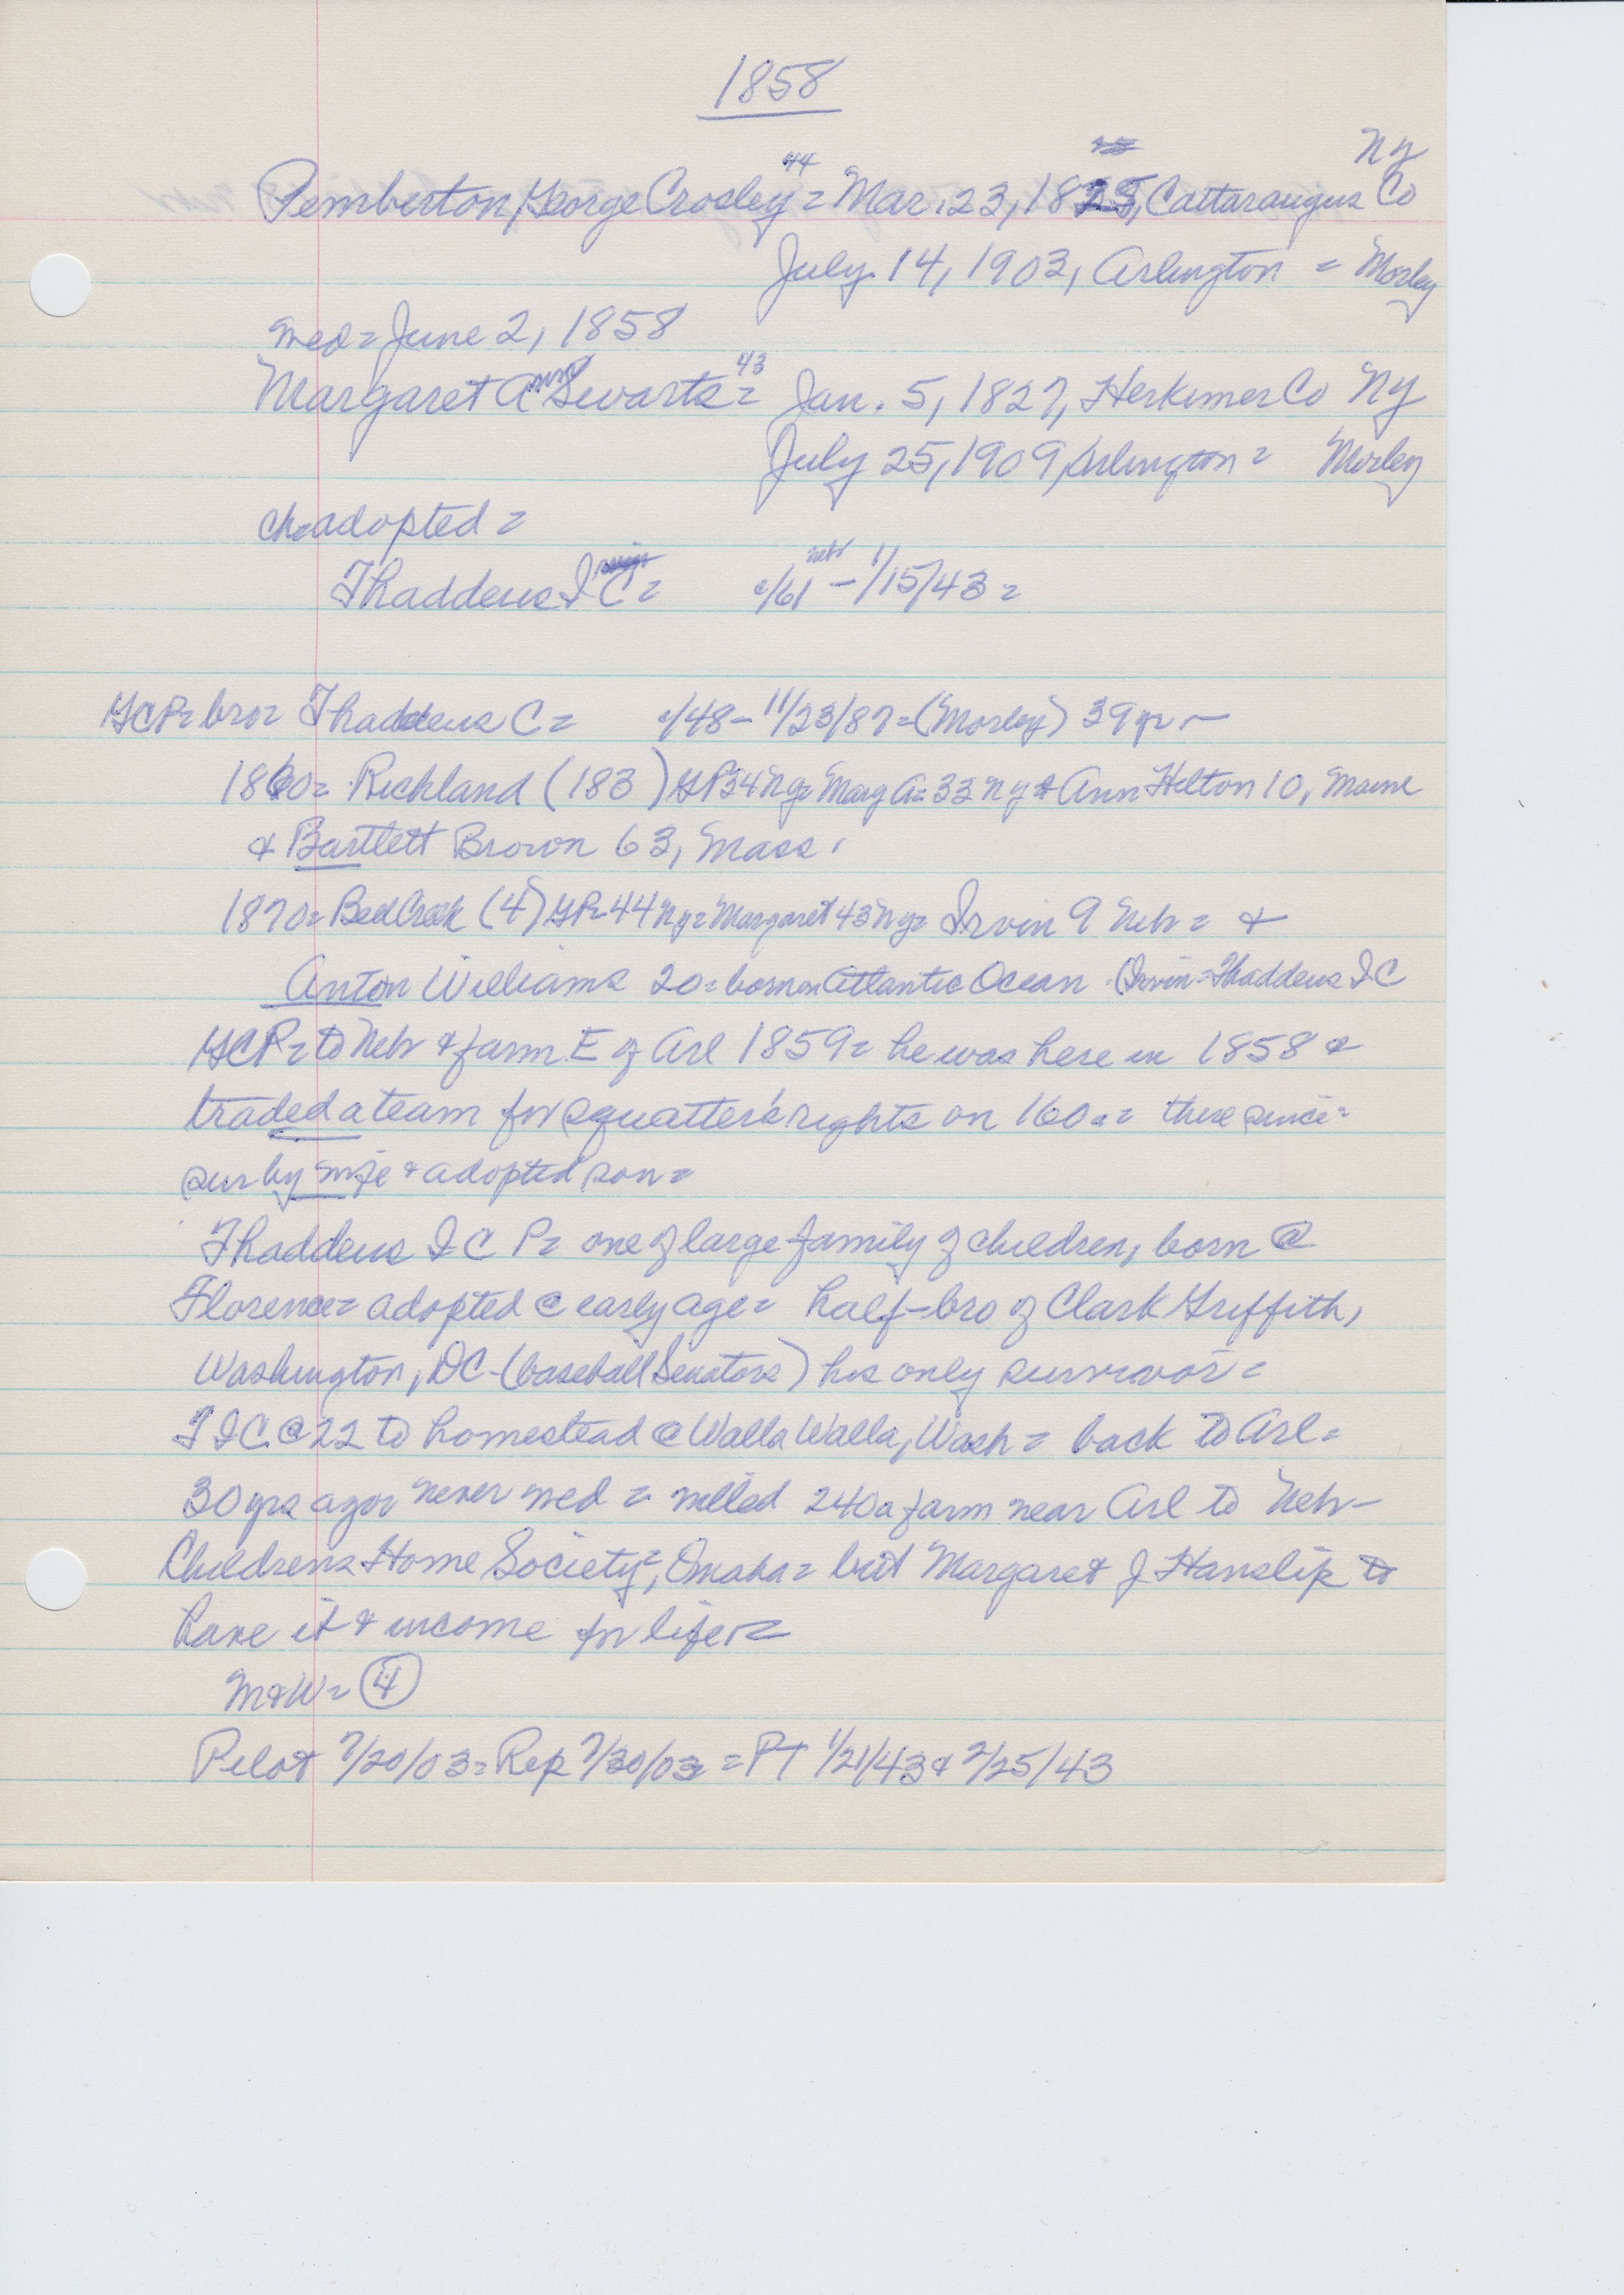 1858
44 NY
Pemberton, George Crosley = Mar. 23, 1825, Cattaraugus Co
July 14, 1903, Arlington = Morley
med = June 2, 1858
43
Margaret Ann Swarts = Jan. 5, 1827, Herkimer Co NY
July 25, 1909, Arlington = Morley
ch = adopted =
Nebr
Thaddeus I C = c/61 - 1/15/43 =
GCP = bro = Thaddeus C = c/48 - 11/23/87 = (Morley) 39 yr -
1860 = Richland (183) GP 34 NY = Marg A = 33 NY & Ann Helton 10, Maine
& Bartlett Brown 63, Mass.
1870 = Bell Creek (4) GP = 44 NY = Margaret 43 NY = Irvin 9 Neb = &
Anton Williams 20 = born on Atlantic Ocean (Irvin = Thaddeus I C
GCP = to Neb & farm E of Arl 1859 = he was here in 1858 &
traded a team for squatter's rights on 160 a = there since =
sur by wife & adopted son =
Thaddeus I C P = one of large family of children, born @
Florence = adopted @ early age = half-bro of Clark Griffith,
Washington, DC - (baseball Senators) his only survivor =
T I C @ 22 to homestead @ Walla Walla, Wash = back to Arl =
30 yrs ago = never med = willed 240 a farm near Arl to Neb -
Childrens Home Society =, Omaha = but Margaret J Hanslip to
have it & income for life =
M&W = 4
Pilot 7/20/03 = Rep 7/30/03 = PT 1/21/43 & 2/25/43